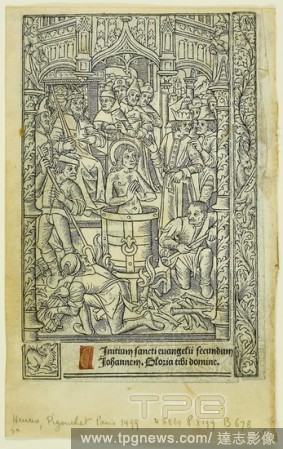 TPG
Initium sancti euangelii secundum
Johannem. Gloria tibi domine.
Heures, Pigouchet Paris 1499
www.tpgnews.com/達志影像